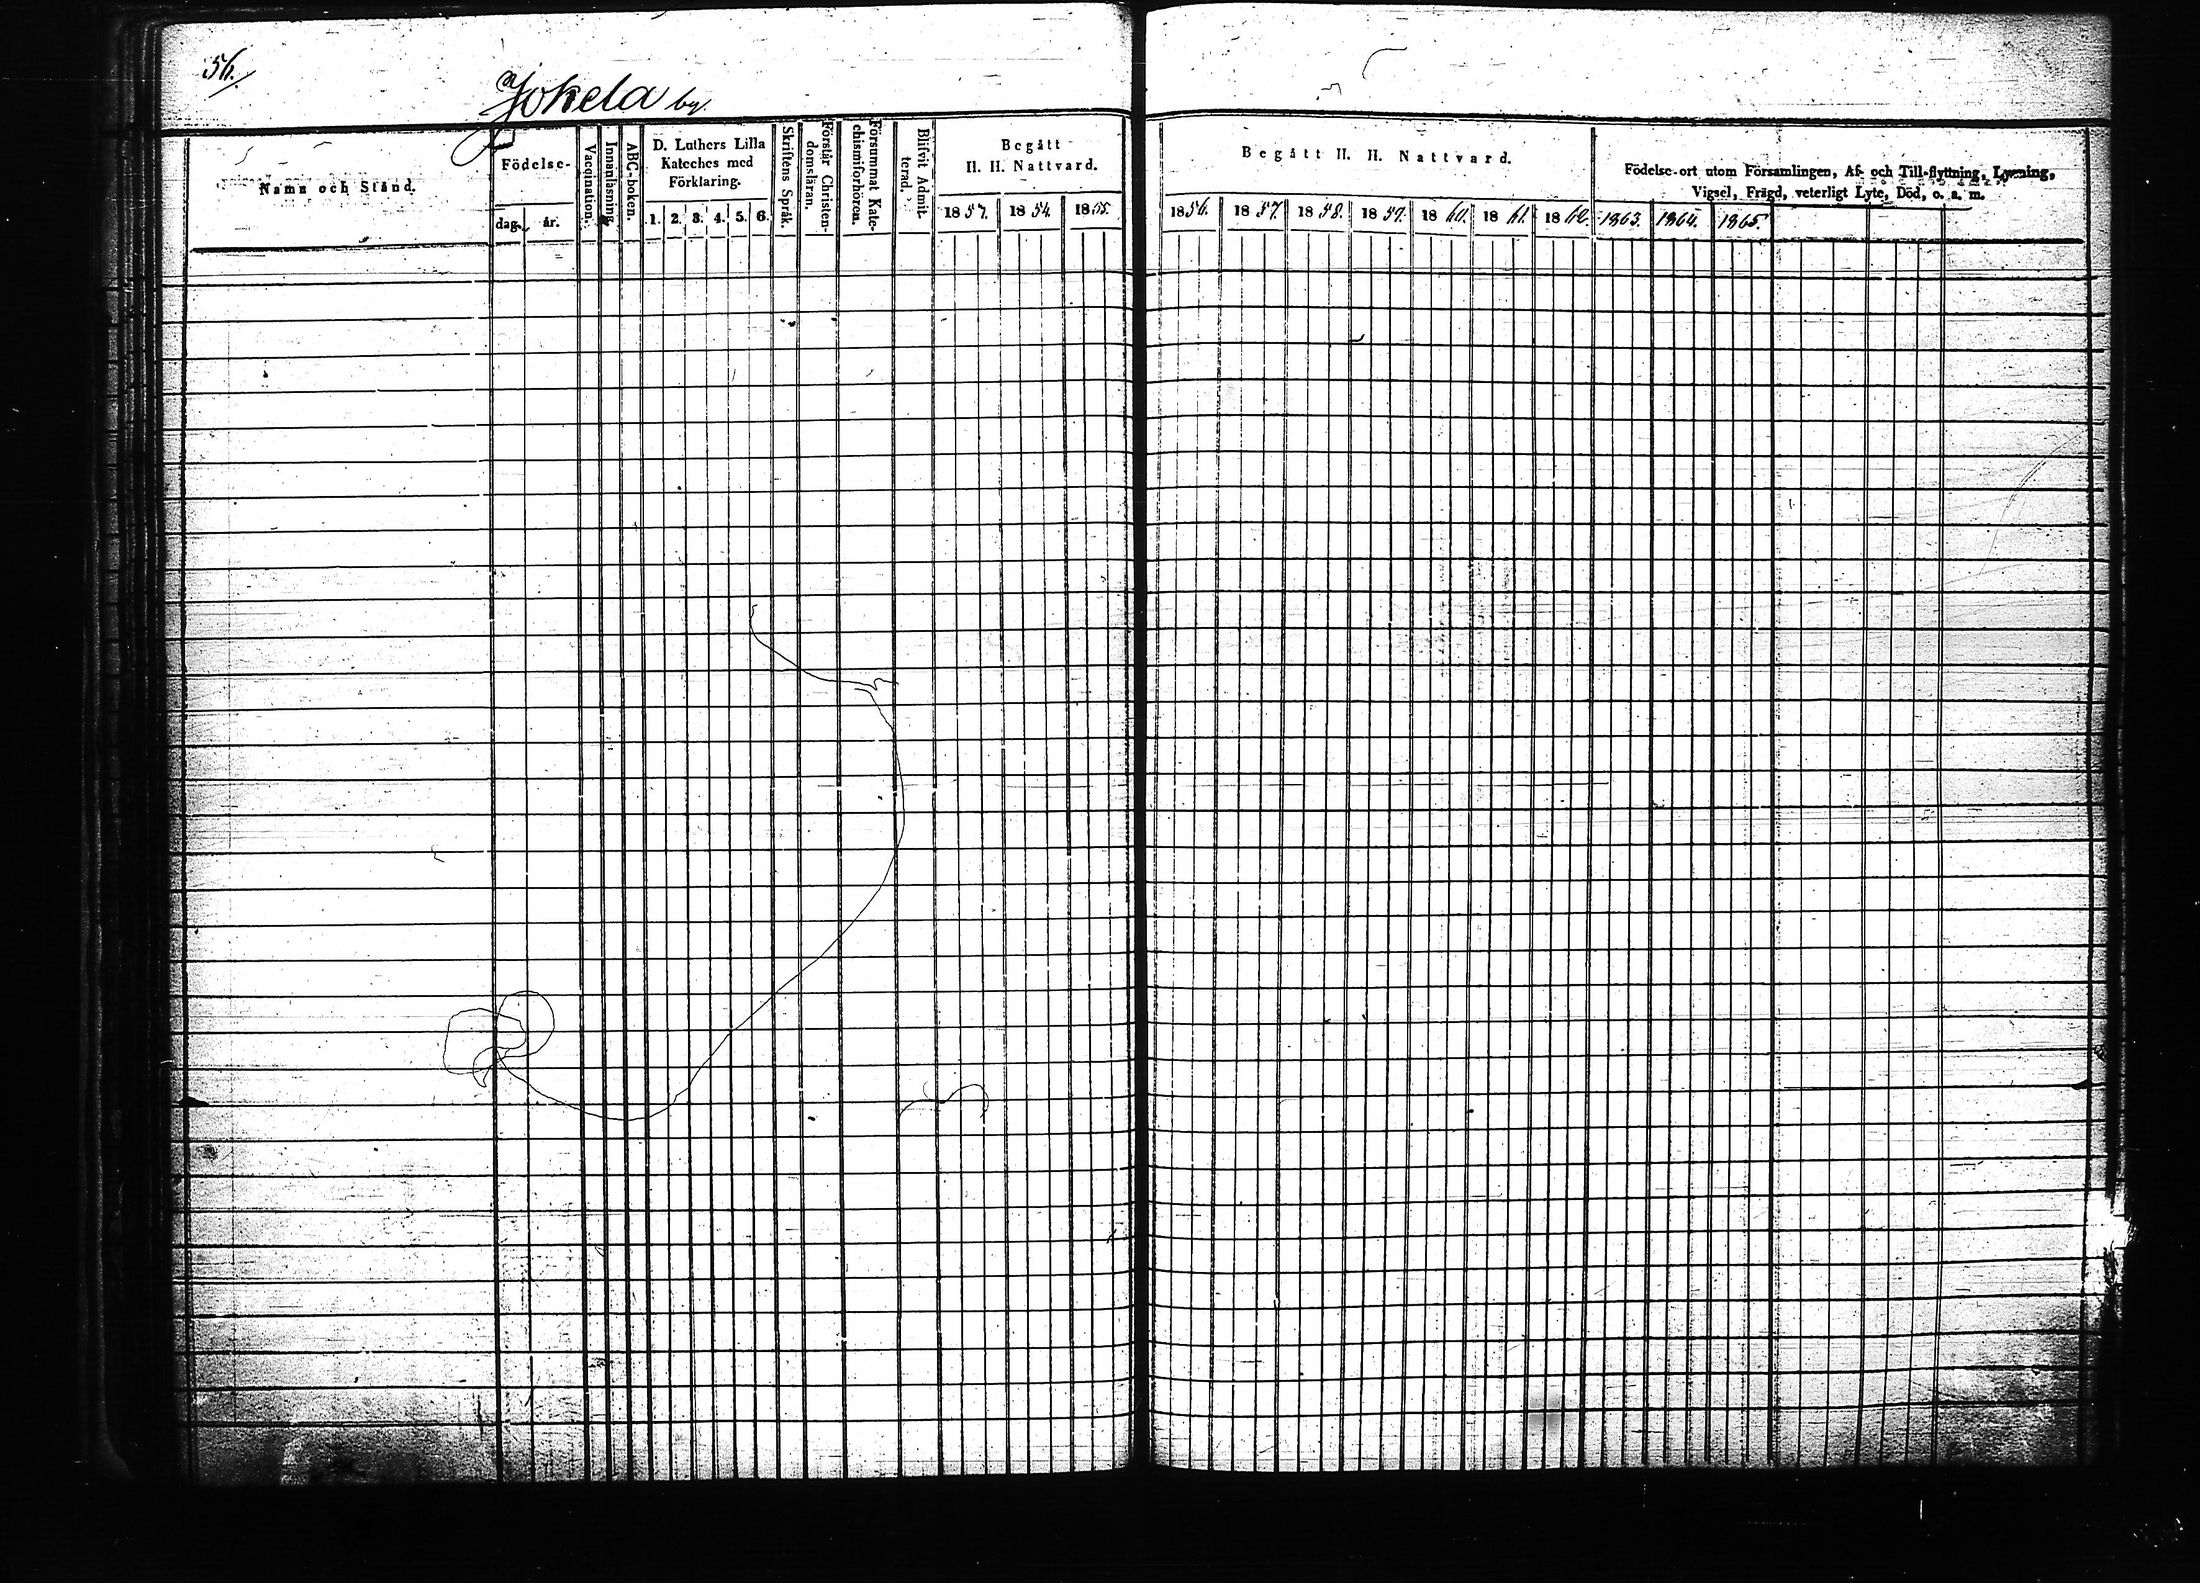 56.
Jokela by.
Namn och Stånd.
Födelse-
dag.
år.
Vaccination.
Innanläsning.
ABC-boken.
D. Luthers Lilla
Kateches med
Förklaring.
1. 2. 3. 4. 5. 6.
Skriftens Språk.
Förstår Christen-
domsläran.
Försummat Kate-
chismiförhören.
Blifvit Admit-
terad.
Begått
H. H. Nattvard.
1857. 1854. 1855.
Begått H. H. Nattvard.
1856. 1857. 1858. 1859. 1860. 1861. 1862.
Födelse-ort utom Församlingen, Af- och Till-flyttning, Lysning,
Vigsel, Frägd, veterligt Lyte, Död, o. a. m.
1863. 1864. 1865.